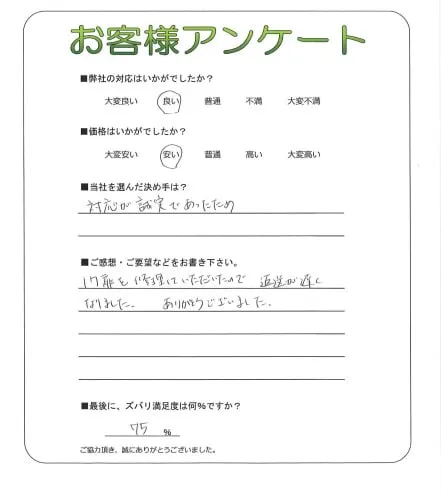 お客様アンケート
■弊社の対応はいかがでしたか？
大変良い 良い 普通 不満 大変不満
■価格はいかがでしたか？
大変安い 安い 普通 高い 大変高い
■当社を選んだ決め手は？
対応が誠実であったため
■ご感想・ご要望などをお書き下さい。
修理していただいたので 返送が遅く
なりました。 ありがとうございました。
■最後に、ズバリ満足度は何％ですか？
75 ％
ご協力頂き、誠にありがとうございました。